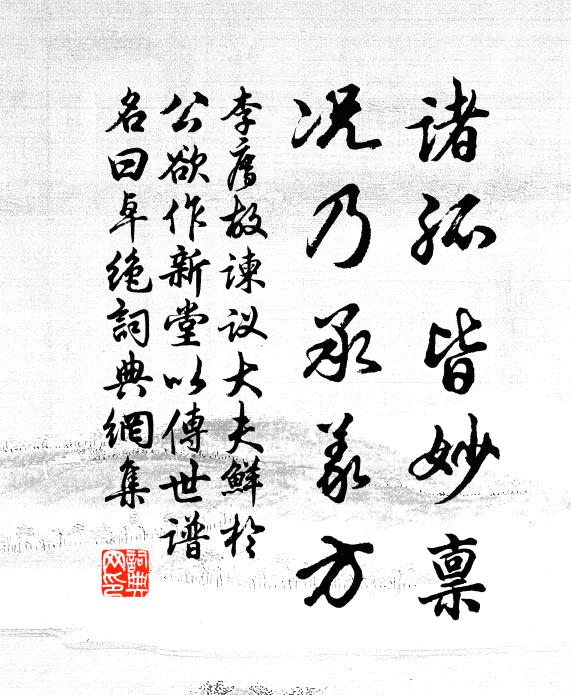 诸孤皆妙禀
况乃承义方
李廌故谏议大夫鲜于
公欲作新堂以傳世谱
名曰卓绝詞典網集